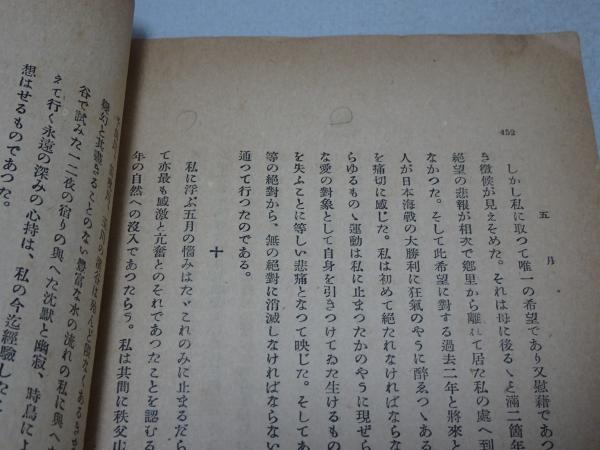 452
五月
しかし私に取つて唯一の希望であり又慰藉であつ
き徴候が見えそめた。それは母に後るゝと満二箇年
絶望の悲報が相次で郷里から離れて居た私の處へ到
なかつた。そして此希望に對する過去二年と將來と
人が日本海戰の大勝利に狂氣のやうに醉ゑつゝある
を痛切に感じた。私は初めて絶たれなければならな
らゆるものゝ運動は私に止まつたかのやうに現ぜら
な愛の對象として自身を引きつけてゐた生けるもの
を失ふことに等しい悲痛となつて映じた。そしてあ
等の絶對から、無の絶對に消滅しなければならない
通つて行つたのである。
十
私に浮ぶ五月の惱みはたゞこれのみに止まるだら
て亦最も感激と亢奮とのそれであつたことを認むる
年の自然への沒入であつたらう。私は其間に秩父山
變幻と其盡きることのない豐富な水の流れの私に與へた
谷で試みた一二夜の宿りの與へた沈默と幽寂、時鳥によ
えて行く永遠の深みの心持は、私の今迄經驗したこ
想はせるものであつた。